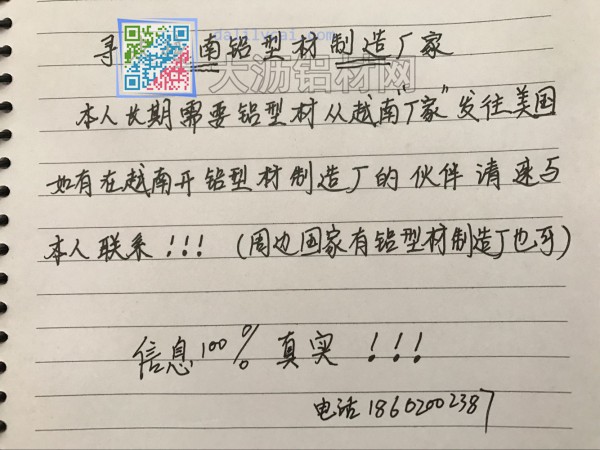 寻 南铝型材制造厂家
dalilvcai.com
大沥铝材网
本人长期需要铝型材从越南“厂家”发往美国
如有在越南开铝型材制造厂的伙伴请速与
本人联系!!!(周边国家有铝型材制造厂也可)
信息100%真实!!!
电话18602002387